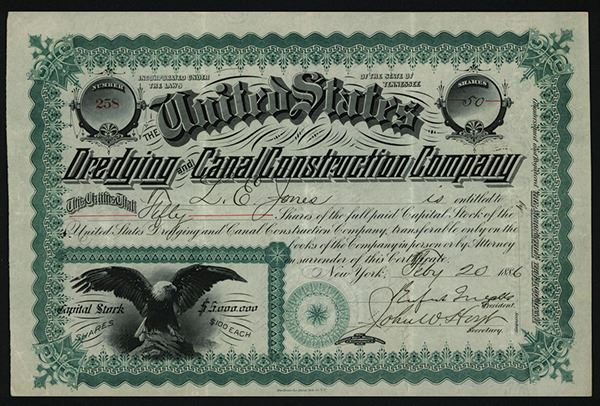 NUMBER
258
INCORPORATED UNDER
THE LAWS
OF THE STATE OF
TENNESSEE
SHARES
50
THE United States
Dredging and Canal Construction Company
This Certifies That L. E. Jones is entitled to
Fifty Shares of the full paid Capital Stock of the
United States Dredging and Canal Construction Company, transferable only on the
books of the Company in person or by Attorney
on surrender of this Certificate.
New York, Feby 20 1886
Capital Stock $5,000,000
SHARES $100 EACH
President.
John W
Secretary.